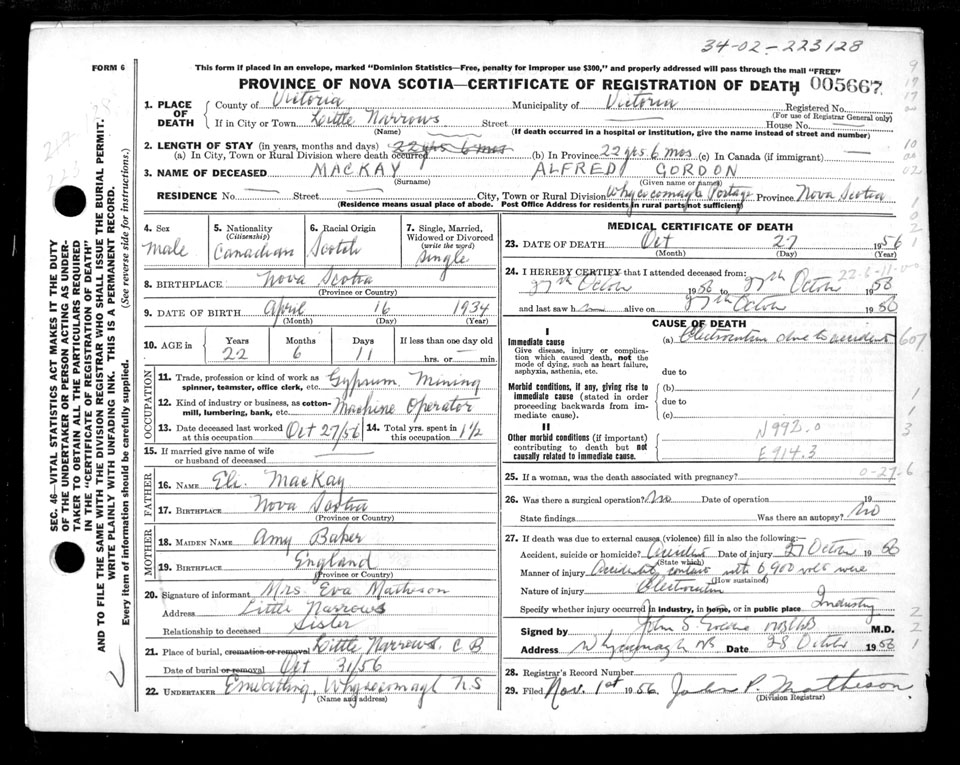 34-02-223128
FORM 6
This form if placed in an envelope, marked "Dominion Statistics—Free, penalty for improper use $300," and properly addressed will pass through the mail "FREE"
PROVINCE OF NOVA SCOTIA—CERTIFICATE OF REGISTRATION OF DEATH 005667
1. PLACE OF DEATH County of Victoria Municipality of Victoria Registered No.
(For use of Registrar General only)
If in City or Town Little Narrows Street House No.
(Name) (If death occurred in a hospital or institution, give the name instead of street and number)
2. LENGTH OF STAY (in years, months and days) 22 yrs 6 mos
(a) In City, Town or Rural Division where death occurred (b) In Province 22 yrs 6 mos (c) In Canada (if immigrant)
3. NAME OF DECEASED MACKAY ALFRED GORDON
(Surname) (Given name or names)
RESIDENCE No. Street City, Town or Rural Division Whycocomagh Portage Province Nova Scotia
(Residence means usual place of abode. Post Office Address for residents in rural parts not sufficient)
4. Sex
Male
5. Nationality
(Citizenship)
Canadian
6. Racial Origin
Scotch
7. Single, Married, Widowed or Divorced
(write the word)
Single
8. BIRTHPLACE Nova Scotia
(Province or Country)
9. DATE OF BIRTH April 16 1934
(Month) (Day) (Year)
10. AGE in Years Months Days If less than one day
22 6 11 hrs. or min.
OCCUPATION
11. Trade, profession or kind of work as spinner, teamster, office clerk, etc. Gypsum Mining
12. Kind of industry or business, as cotton-mill, lumbering, bank, etc. Machine Operator
13. Date deceased last worked at this occupation Oct 27/56
14. Total yrs. spent in this occupation 1 1/2
15. If married give name of wife or husband of deceased
FATHER
16. NAME Eli MacKay
17. BIRTHPLACE Nova Scotia
(Province or Country)
MOTHER
18. MAIDEN NAME Amy Baker
19. BIRTHPLACE England
(Province or Country)
20. Signature of informant Mrs. Eva Matheson
Address Little Narrows
Relationship to deceased Sister
21. Place of burial, cremation or removal Little Narrows, C B
Date of burial or removal Oct 31/56
22. UNDERTAKER Whycocomagh N S
(Name and address)
MEDICAL CERTIFICATE OF DEATH
23. DATE OF DEATH Oct 27 1956
(Month) (Day) (Year)
24. I HEREBY CERTIFY that I attended deceased from:
22-6-11-00
27th October 1956 to 27th October 1956
and last saw h alive on 27th October 1956
CAUSE OF DEATH
I
Immediate cause
Give disease, injury or complication which caused death, not the mode of dying, such as heart failure, asphyxia, asthenia, etc.
(a) Electrocution due to accident
due to
Morbid conditions, if any, giving rise to immediate cause (stated in order proceeding backwards from immediate cause).
(b)
due to
(c)
II
Other morbid conditions (if important) contributing to death but not causally related to immediate cause.
N992.0
E914.3
0-27-6
25. If a woman, was the death associated with pregnancy?
26. Was there a surgical operation? No Date of operation 19
State findings Was there an autopsy? No
27. If death was due to external causes (violence) fill in also the following:
Accident, suicide or homicide? Accident Date of injury 27 October 1956
(State which)
Manner of injury Accidental contact with 6,900 volt wire
(How sustained)
Nature of injury Electrocution
Specify whether injury occurred in industry, in home, or in public place Industry
Signed by John S. M.D.
Address Whycocomagh NS Date 28 October 1956
28. Registrar's Record Number
29. Filed Nov. 1st 1956 John P. Matheson
(Division Registrar)
SEC. 46—VITAL STATISTICS ACT MAKES IT THE DUTY
OF THE UNDERTAKER OR PERSON ACTING AS UNDER-
TAKER TO OBTAIN ALL THE PARTICULARS REQUIRED
IN THE "CERTIFICATE OF REGISTRATION OF DEATH"
AND TO FILE THE SAME WITH THE DIVISION REGISTRAR WHO SHALL ISSUE THE BURIAL PERMIT.
WRITE PLAINLY WITH UNFADING INK. THIS IS A PERMANENT RECORD.
Every item of information should be carefully supplied. (See reverse side for instructions.)